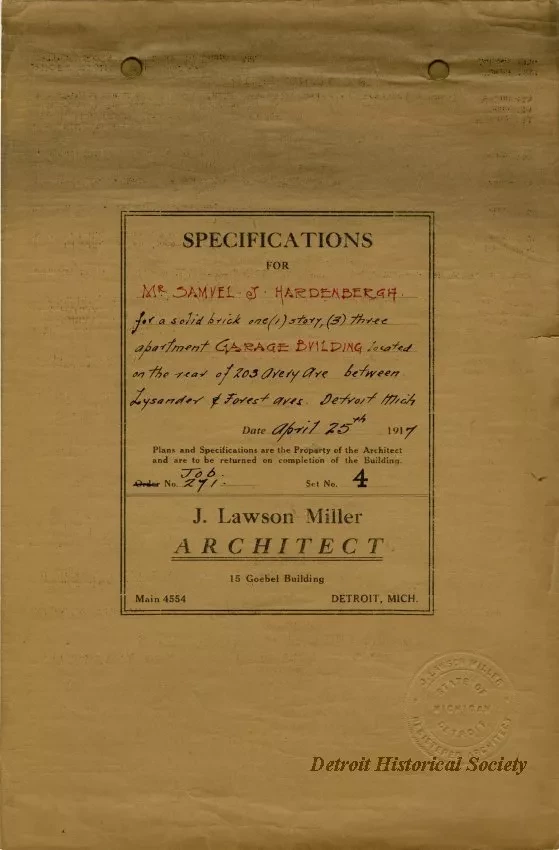 SPECIFICATIONS
FOR
MR. SAMVEL J. HARDENBERGH.
for a solid brick one (1) story, (3) three
apartment GARAGE BUILDING located
on the rear of 203 Avery Ave between
Lysander & Forest aves. Detroit Mich
Date April 25th 1917
Plans and Specifications are the Property of the Architect
and are to be returned on completion of the Building.
Job
Order No. 271- Set No. 4
J. Lawson Miller
ARCHITECT
15 Goebel Building
Main 4554 DETROIT, MICH.
J. LAWSON MILLER
STATE OF
MICHIGAN
DETROIT
REGISTERED ARCHITECT
Detroit Historical Society